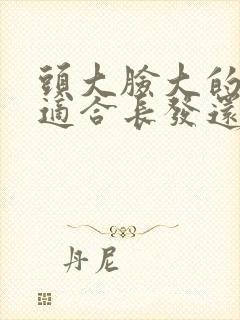 頭大臉大的
適合長發還
丹尼